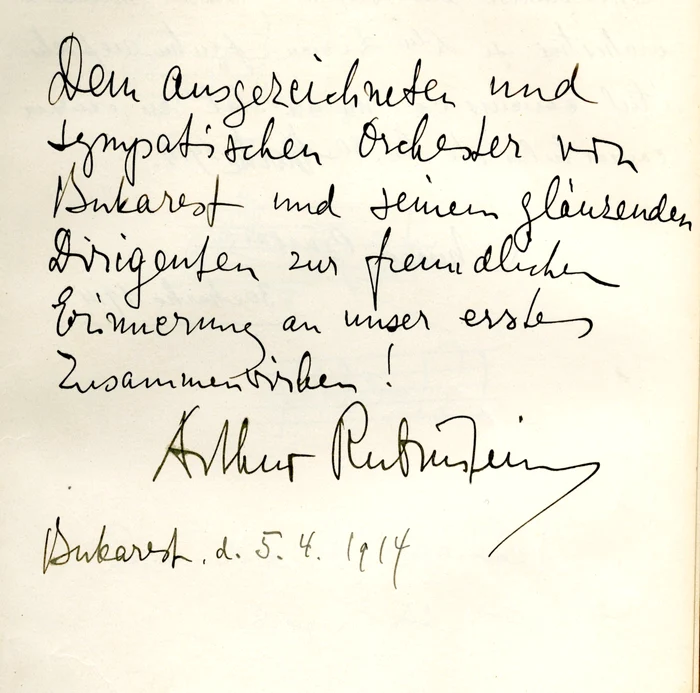 Dem ausgezeichneten und
sympatischen Orchester von
Bukarest und seinem glänzenden
Dirigenten zur freundlichen
Erinnerung an unser erstes
Zusammenwirken!
Arthur Rubinstein
Bukarest, d. 5. 4. 1914